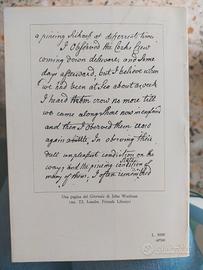 a pineing Sickness at different times.
I observed the Cocks Crew
coming down delaware, and some
days afterward, but I believe when
we had been at Sea about a week
I heard them crow no more till
we came along Shore near england
and then I observed them crow
again a little. In observing their
dull unpleasant condition on the
way, and the pineing condition of
many of them, I often remembred
Una pagina del Giornale di John Woolman
(ms. D, Londra, Friends Library)
L. 3000